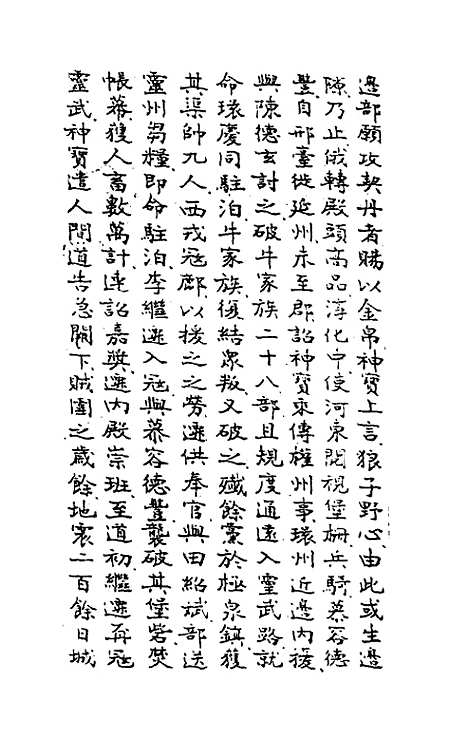 邉部願攻契丹者賜以金帛神寳上言狼子野心由此或生邉
陳乃止俄轉殿頭髙品淳化中使河東閱視堡柵兵騎慕容德
豐自邢臺徙延州未至郡詔神寳乘傳權州事環州近邉内擾
與陳德玄討之破牛家族二十八部且規度通逺入靈武路就
命環慶同駐泊牛家族復結衆叛又破之殱餘黨於極泉鎮獲
其渠帥九人西戎冦鄜以援之之勞遷供奉官與田紹斌部送
靈州芻糧即命駐泊李繼遷入冦與慕容德豐襲破其堡砦焚
帳幕獲人畜數萬計連詔嘉奬遷内殿崇班至道初繼遷再冦
靈武神寳遣人間道告急闕下賊圍之歳餘地震二百餘日城